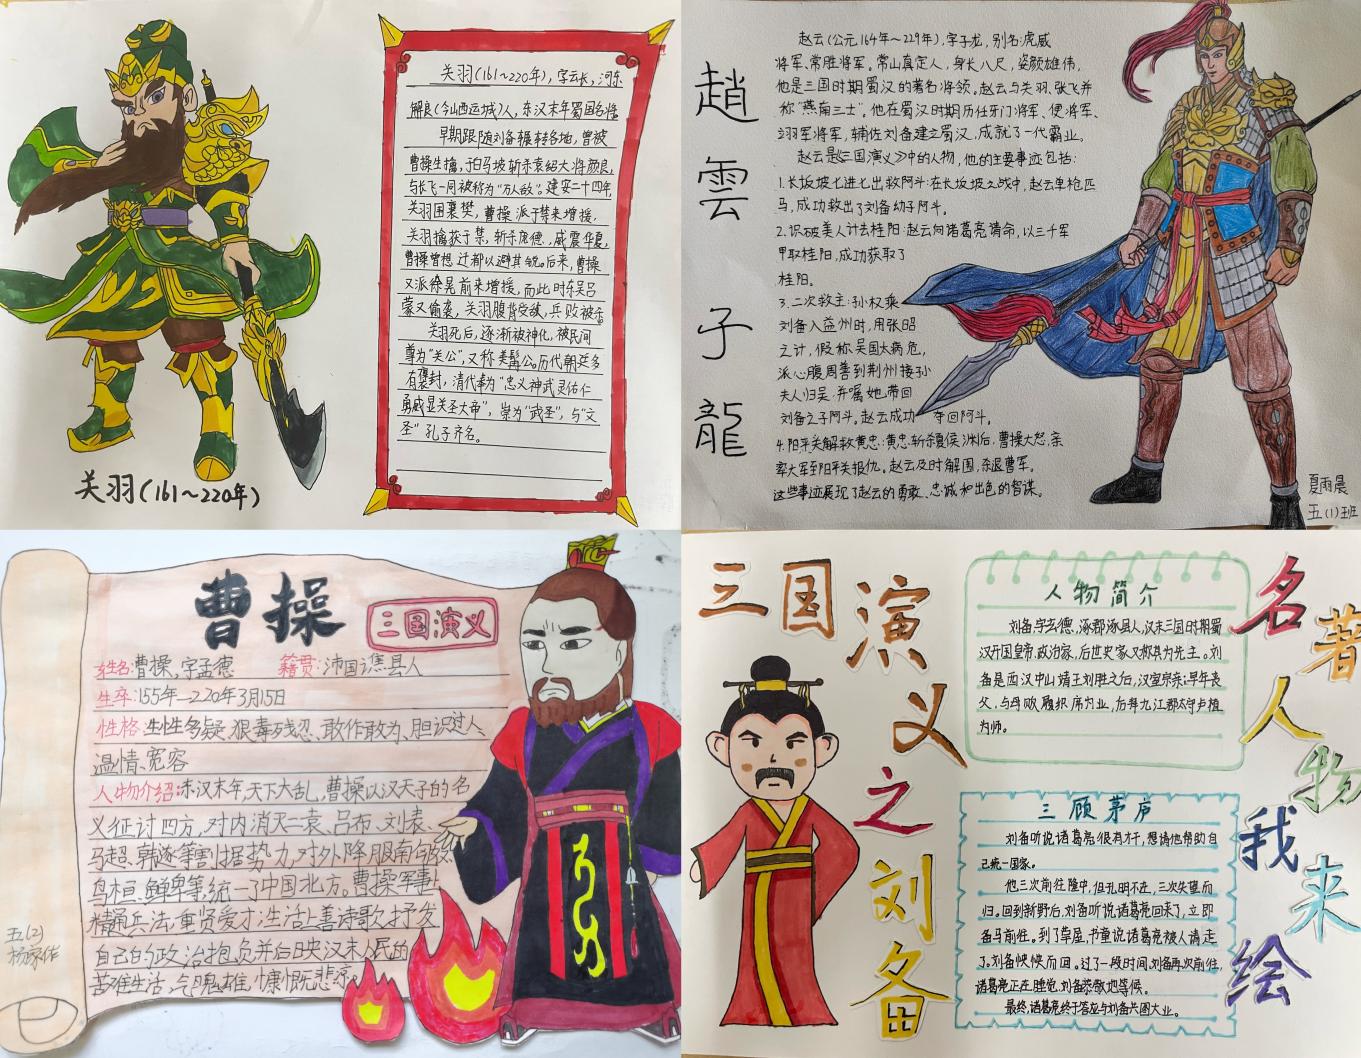 关羽(161～220年),字云长,河东
解良(今山西运城)人,东汉末年蜀国名将
早期跟随刘备辗转各地,曾被
曹操生擒,于白马坡斩杀袁绍大将颜良,
与长飞一同被称为"万人敌"。建安二十四年,
关羽围襄樊,曹操派于禁来增援,
关羽擒获于禁,斩杀庞德,威震华夏,
曹操曾想迁都以避其锐。后来,曹操
又派徐晃前来增援,而此时东吴吕
蒙又偷袭,关羽腹背受敌,兵败被杀
关羽死后,逐渐被神化,被民间
尊为"关公",又称美髯公。历代朝廷多
有褒封,清代奉为"忠义神武灵佑仁
勇威显关圣大帝",崇为"武圣",与"文
圣"孔子齐名。
关羽(161～220年)
趙雲子龍
赵云(公元164年～229年),字子龙,别名:虎威
将军、常胜将军。常山真定人,身长八尺,姿颜雄伟,
他是三国时期蜀汉的著名将领。赵云与关羽、张飞并
称"燕南三士"。他在蜀汉时期历任牙门将军、偏将军、
翊军将军,辅佐刘备建立蜀汉,成就了一代霸业。
赵云是《三国演义》中的人物,他的主要事迹包括:
1.长坂坡七进七出救阿斗:在长坂坡之战中,赵云单枪匹
马,成功救出了刘备幼子阿斗。
2.识破美人计去桂阳:赵云向诸葛亮请命,以三千军
甲取桂阳,成功获取了
桂阳。
3.二次救主:孙权乘
刘备入益州时,用张昭
之计,假称吴国太病危,
派心腹周善到荆州接孙
夫人归吴,并嘱她带回
刘备之子阿斗。赵云成功夺回阿斗。
4.阳平关解救黄忠:黄忠斩杀夏侯渊后,曹操大怒,亲
率大军至阳平关报仇。赵云及时解围,杀退曹军。
这些事迹展现了赵云的勇敢、忠诚和出色的智谋。
夏雨晨
五(1)班
曹操
三国演义
姓名:曹操,字孟德 籍贯:沛国谯县人
生卒:155年—220年3月15日
性格:生性多疑、狠毒残忍、敢作敢为、胆识过人、
温情、宽容
人物介绍:东汉末年,天下大乱,曹操以汉天子的名
义征讨四方,对内消灭二袁、吕布、刘表、
马超、韩遂等割据势力,对外降服南匈奴、
乌桓、鲜卑等,统一了中国北方。曹操军事上
精通兵法,重贤爱才,生活上善诗歌,抒发
自己的政治抱负,并后映汉末人民的
苦难生活,气魄雄,慷慨悲凉。
五(2)
三国演义之刘备
人物简介
刘备,字玄德,涿郡涿县人,汉末三国时期蜀
汉开国皇帝,政治家,后世史家又称其为先主。刘
备是西汉中山靖王刘胜之后,汉室宗亲;早年丧
父,与母贩履织席为业,后拜九江郡太守卢植
为师。
三顾茅庐
刘备听说诸葛亮很有才干,想请他帮助自
己统一国家。
他三次前往隆中,但孔明不在,三次失望而
归。回到新野后,刘备听说诸葛亮回来了,立即
备马前往。到了草屋,书童说诸葛亮被人请走
了。刘备怏怏而回。过了一段时间,刘备再次前往,
诸葛亮正在睡觉,刘备恭敬地等候。
最终,诸葛亮终于答应与刘备共图大业。
名著人物我来绘